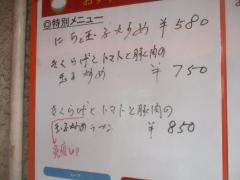 ◎特別メニュー
にらと玉子炒め ¥580
きくらげとトマトと豚肉の
玉子炒め ¥750
きくらげとトマトと豚肉の
玉子炒めラーメン ¥850